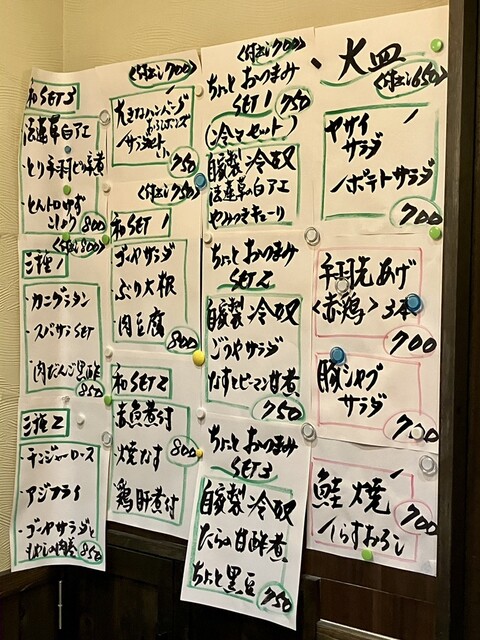 和SET3
法蓮草白アエ
・とり手羽ピリ辛煮
・とんトロゆず
こしょう
800
三種1
・カニグラタン
・スパサンSET
・肉だんご黒酢
850
三種2
・チンジャーロース
・アジフライ
・ゴーヤサラダと
850
700
大きなハンバーグ
おろしポンズ
750
和SET1
・ゴーヤサラダ
・ぶり大根
・肉豆腐
800
和SET2
・赤魚煮付
・焼なす
・鶏肝煮付
800
700
ちょっとおつまみ
SET1
750
自家製冷奴
法蓮草白アエ
やみつきキューリ
ちょっとおつまみ
SET2
自家製冷奴
ごうやサラダ
なすとピーマン甘煮
750
ちょっとおつまみ
SET3
自家製冷奴
たらの甘酢煮
ちょっと黒豆
750
大皿
650
ヤサイ
サラダ
ポテトサラダ
700
手羽先あげ
〈赤鶏〉3本
700
豚シャブ
サラダ
700
鮭焼
しらすおろし
700